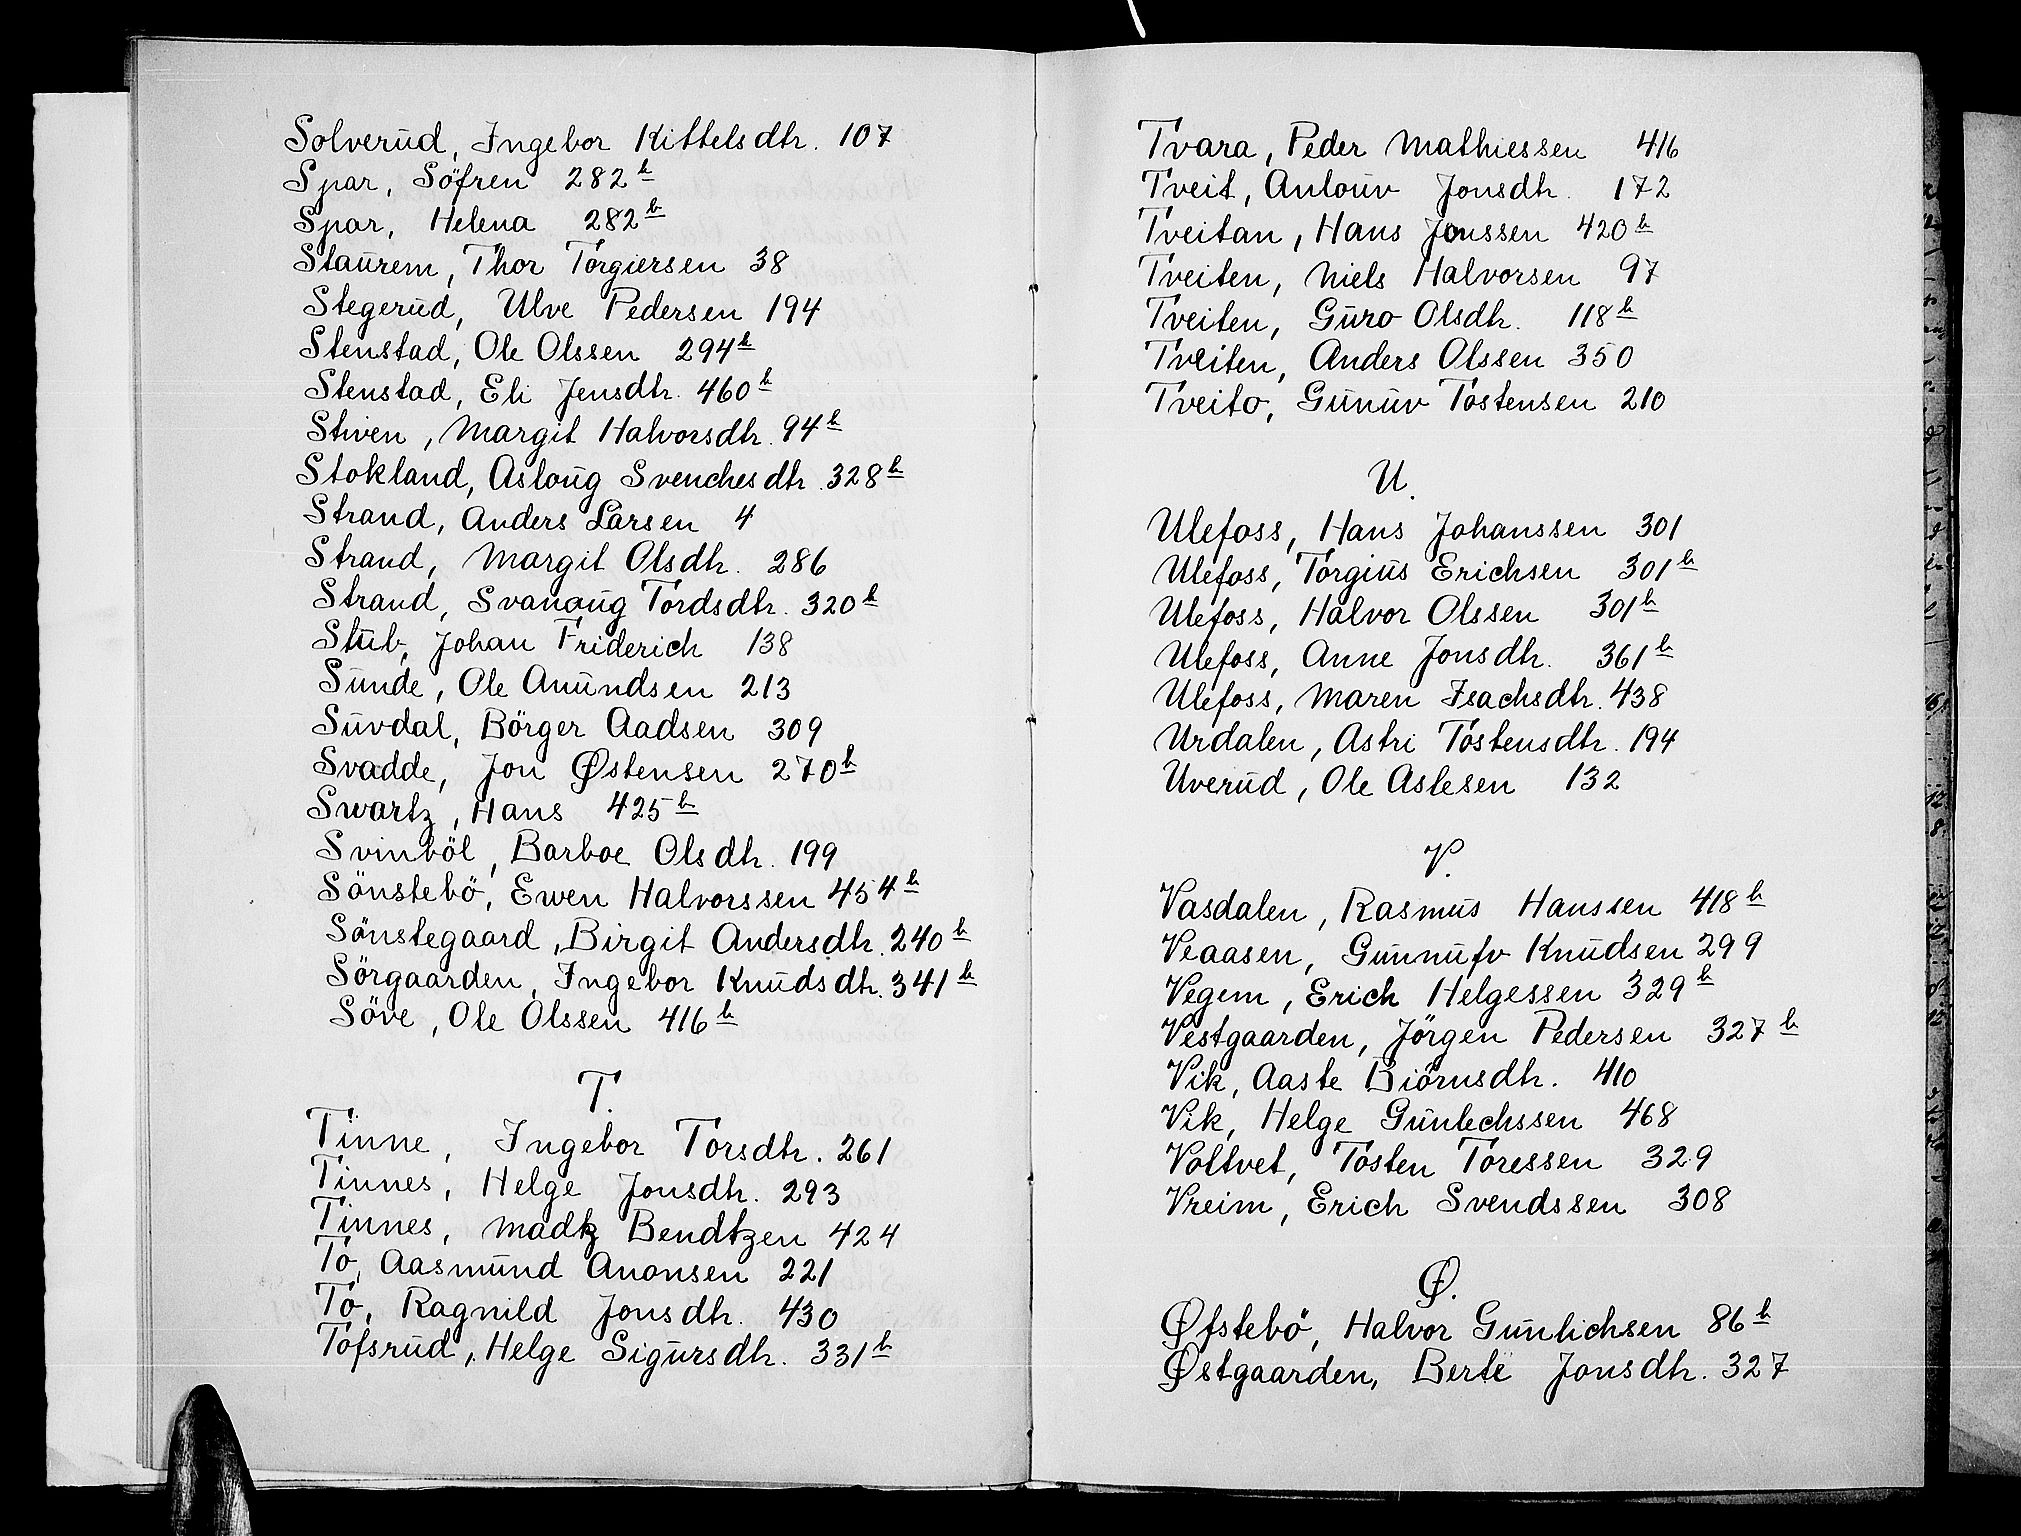 Solverud, Ingebor Kittelsdtr. 107
Spar, Söfren 282 b
Spar, Helena 282 b
Staurem, Thor Torgiersen 38
Stegerud, Ulve Pedersen 194
Stenstad, Ole Olssen 294 b
Stenstad, Eli Jensdtr. 460 b
Stiven, Margit Halvorsdtr. 94 b
Stokland, Asloug Svenchesdtr. 328 b
Strand, Anders Larsen 4
Strand, Margit Olsdtr. 286
Strand, Svanaug Tordsdtr. 320 b
Stub, Johan Friderich 138
Sunde, Ole Anundsen 213
Suvdal, Börger Aadsen 309
Svadde, Jon Østensen 270 b
Swartz, Hans 425 b
Svinböl, Barboe Olsdtr. 199
Sönstebö, Ewen Halvorssen 454 b
Sönstegaard, Birgit Andersdtr. 240 b
Sörgaarden, Ingebor Knudsdtr. 341 b
Söve, Ole Olssen 416 b
T.
Tinne, Ingebor Torsdtr. 261
Tinnes, Helge Jonsdtr. 293
Tinnes, Madtz Bendtzen 424
To, Aasmund Anonsen 221
To, Ragnild Jonsdtr. 430
Tofsrud, Helge Sigursdtr. 331 b
Tvara, Peder Mathiessen 416
Tveit, Anlouv Jonsdtr. 172
Tveitan, Hans Jonssen 420 b
Tveiten, Niels Halvorsen 97
Tveiten, Guro Olsdtr. 118 b
Tveiten, Anders Olssen 350
Tveito, Gunuv Tostensen 210
U.
Ulefoss, Hans Johanssen 301
Ulefoss, Torgius Erichsen 301 b
Ulefoss, Halvor Olssen 301 b
Ulefoss, Anne Jonsdtr. 361 b
Ulefoss, Maren Isachsdtr. 438
Urdalen, Astri Tostensdtr. 194
Uverud, Ole Aslesen 132
V.
Vasdalen, Rasmus Hanssen 418 b
Veaasen, Gunnufv Knudsen 299
Vegem, Erich Helgessen 329 b
Vestgaarden, Jörgen Pedersen 327 b
Vik, Aaste Biörnsdtr. 410
Vik, Helge Gunlechssen 468
Voltvet, Tosten Toressen 329
Vreim, Erich Svendssen 308
Ø.
Øfstebö, Halvor Gunlichsen 86 b
Østgaarden, Berte Jonsdtr. 327